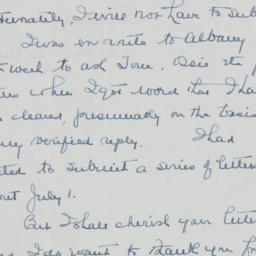 tunately, I will not have to sub
I was en route to Albany
week to ask Tom. Osis
when I got word that I ha
cleared, presumably on the basis
my verified reply. I had
ted to submit a series of letters
out July 1.
But I shall cherish your lette
I do want to thank you fr